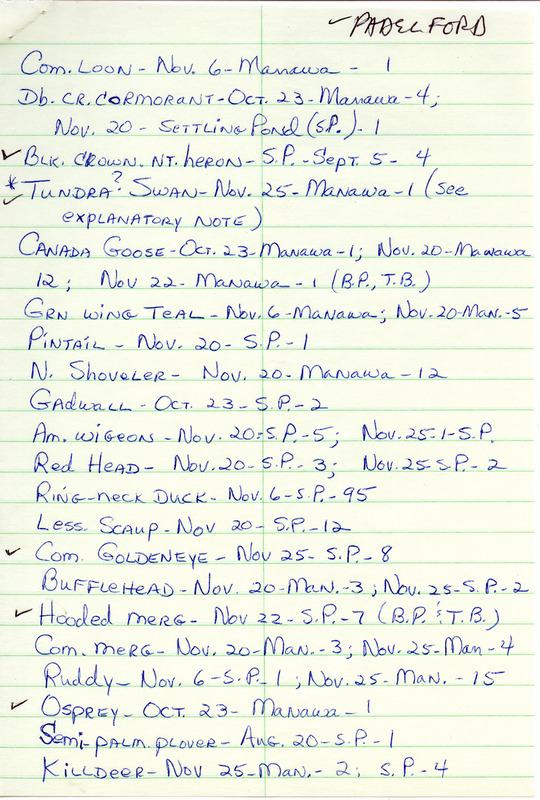 ✓PADELFORD
Com. Loon - Nov. 6 - Manawa - 1
Db. CR. CORMORANT - Oct. 23 - Manawa - 4;
Nov. 20 - SETTLING Pond (S.P.) - 1
✓ Blk. CROWN. NT. heron - S.P. - Sept. 5 - 4
*✓ TUNDRA? SWAN - Nov. 25 - Manawa - 1 (See
explanatory NOTE)
CANADA GOOSE - Oct. 23 - Manawa - 1; Nov. 20 - Manawa
12; Nov 22 - Manawa - 1 (B.P., T.B.)
GRN WING TEAL - Nov. 6 - Manawa; Nov. 20 - Man. - 5
PiNTAIL - Nov. 20 - S.P. - 1
N. Shoveler - Nov. 20 - Manawa - 12
GADWALL - Oct. 23 - S.P. - 2
Am. wigeons - Nov. 20 - S.P. - 5; Nov. 25 - 1 - S.P.
Red Head - Nov. 20 - S.P. - 3; Nov. 25 - S.P. - 2
RING-neck DUCK - Nov. 6 - S.P. - 95
Less. Scaup - Nov 20 - S.P. - 12
✓ Com. GOLDENEYE - Nov 25 - S.P. - 8
BuffleHEAD - Nov. 20 - Man. - 3; Nov. 25 - S.P. - 2
✓ Hooded merg - Nov 22 - S.P. - 7 (B.P. & T.B.)
Com. merg - Nov. 20 - Man. - 3; Nov. 25 - Man - 4
Ruddy - Nov. 6 - S.P. - 1; Nov. 25 - Man. - 15
✓ OSPREY - Oct. 23 - Manawa - 1
Semi-palm. plover - Aug. 20 - S.P. - 1
KILLDEER - Nov 25 - Man. - 2; S.P. - 4